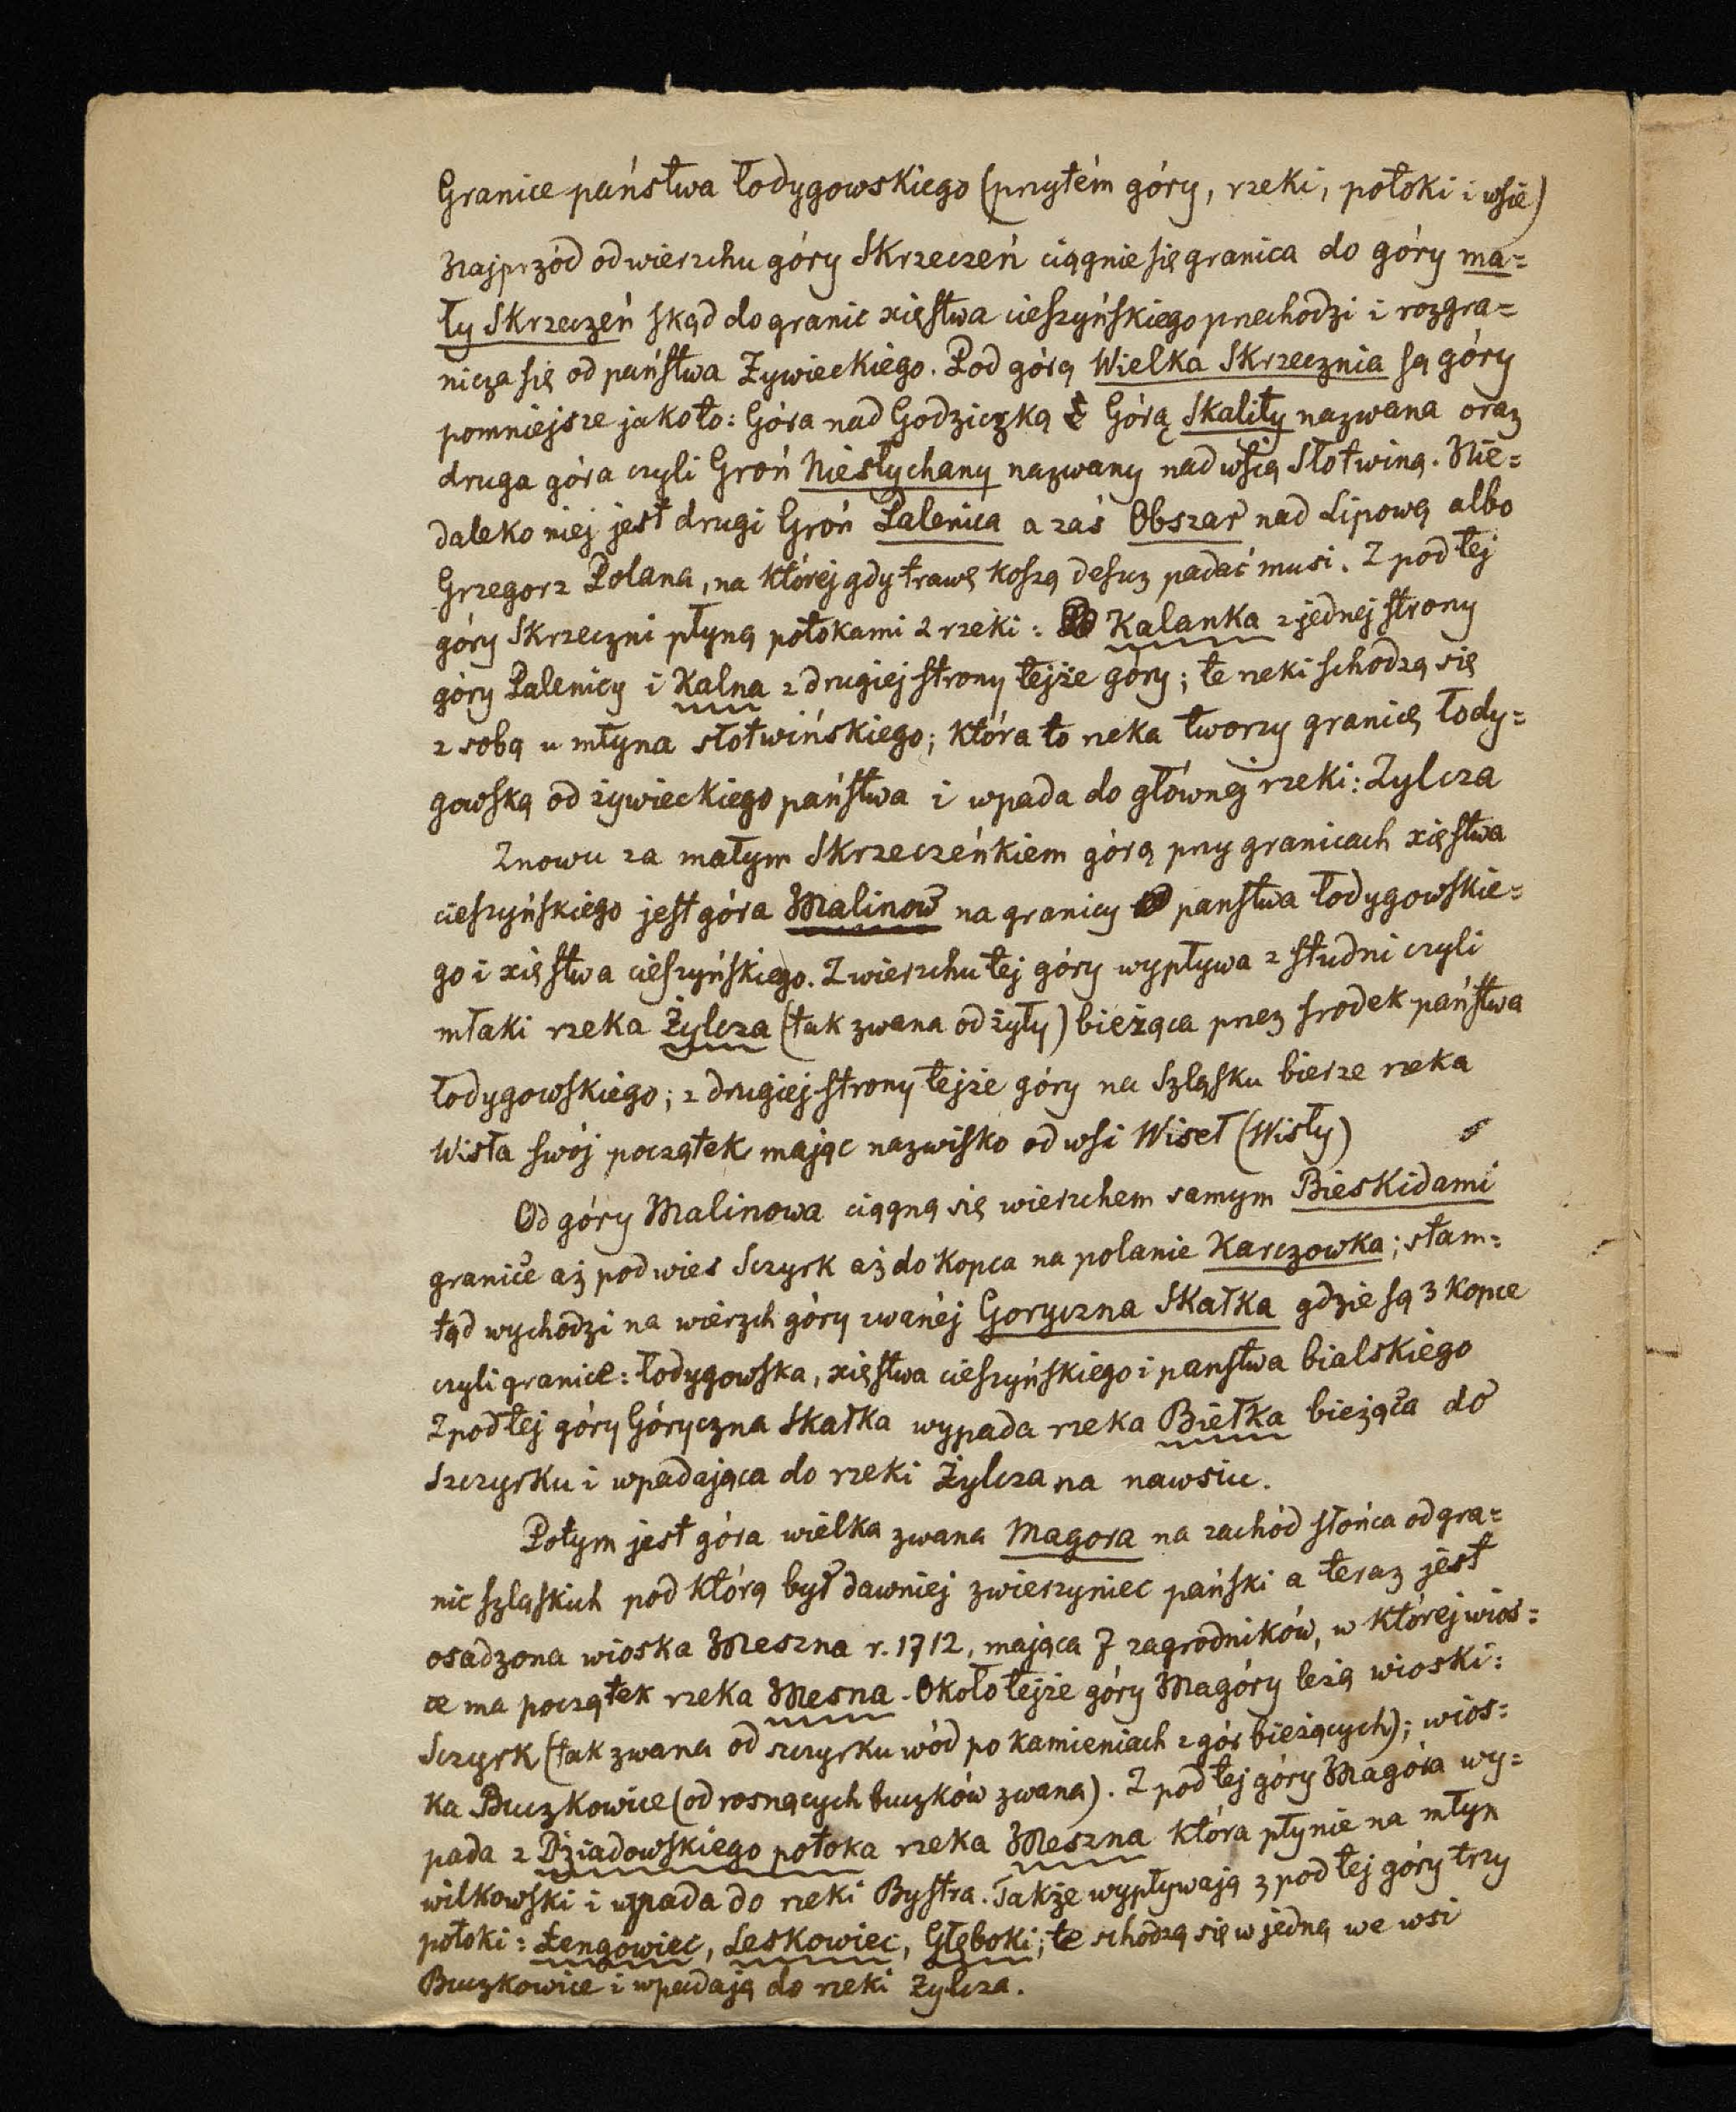 Granice państwa łodygowskiego (przytém góry, rzeki, potoki i wsie)
Najprzód od wierzchu góry Skrzeczeń ciągnie się granica do góry ma=
ły Skrzeczeń skąd do granic xięstwa cieszyńskiego przechodzi i rozgra=
nicza się od państwa Żywieckiego. Pod górą Wielka Skrzecznia są góry
pomniejsze jako to: Góra nad Godziczką Górą Skality nazwana oraz
druga góra czyli Groń Niesłychany nazwany nad wsią Słotwiną. Nie=
daleko niej jest drugi Groń Palenica a zaś Obszar nad Lipową albo
Grzegorz Polana, na której gdy trawę koszą deszcz padać musi. Z pod tej
góry Skrzeczni płyną potokami 2 rzeki: Kalanka z jednej strony
góry Palenicy i Kalna z drugiej strony tejże góry; te rzeki schodzą się
z sobą u młyna słotwińskiego; która to rzeka tworzy granicę łody=
gowską od żywieckiego państwa i wpada do głównej rzeki: Zylcza
Znowu za małym Skrzeczeńkiem górą przy granicach xięstwa
cieszyńskiego jest góra Malinow na granicy panstwa łodygowskie=
go i xięstwa cieszyńskiego. Z wierzchu tej góry wypływa z studni czyli
młaki rzeka Żylcza (tak zwana od żyły) bieżąca przez srodek państwa
łodygowskiego; z drugiej strony tejże góry na Szląsku bierze rzeka
Wisła swój początek mając nazwisko od wsi Wiseł (Wisły)
Od góry Malinowa ciągną się wierzchem samym Bieskidami
granice aż pod wies Sczyrk aż do kopca na polanie Karczowka; stam=
tąd wychodzi na wierzch góry zwanéj Goryczna Skałka gdzie są 3 kopce
czyli granice: łodygowska, xięstwa cieszyńskiego i panstwa bialskiego
Z pod tej góry Góryczna Skałka wypada rzeka Biełka bieżąca do
Szczyrku i wpadająca do rzeki Żylcza na nawsiu.
Potym jest góra wielka zwana Magora na zachód słońca od gra=
nic szląskich pod którą był dawniej zwierzyniec pański a teraz jest
osadzona wioska Meszna r. 1712, mająca 7 zagrodników, w której wios=
ce ma początek rzeka Mesna. Około tejże góry Magóry leżą wioski:
Sczyrk (tak zwana od szczyrku wód po kamieniach z gór bieżących); wios=
ka Buczkowice (od rosnących buczków zwana). Z pod tej góry Magóra wy=
pada z Dziadowskiego potoka rzeka Meszna która płynie na młyn
wilkowski i wpada do rzeki Bystra. Także wypływają z pod tej góry trzy
potoki: Łengowiec, Leskowiec, Głęboki; te schodzą się w jedną we wsi
Buczkowice i wpadają do rzeki Zylcza.